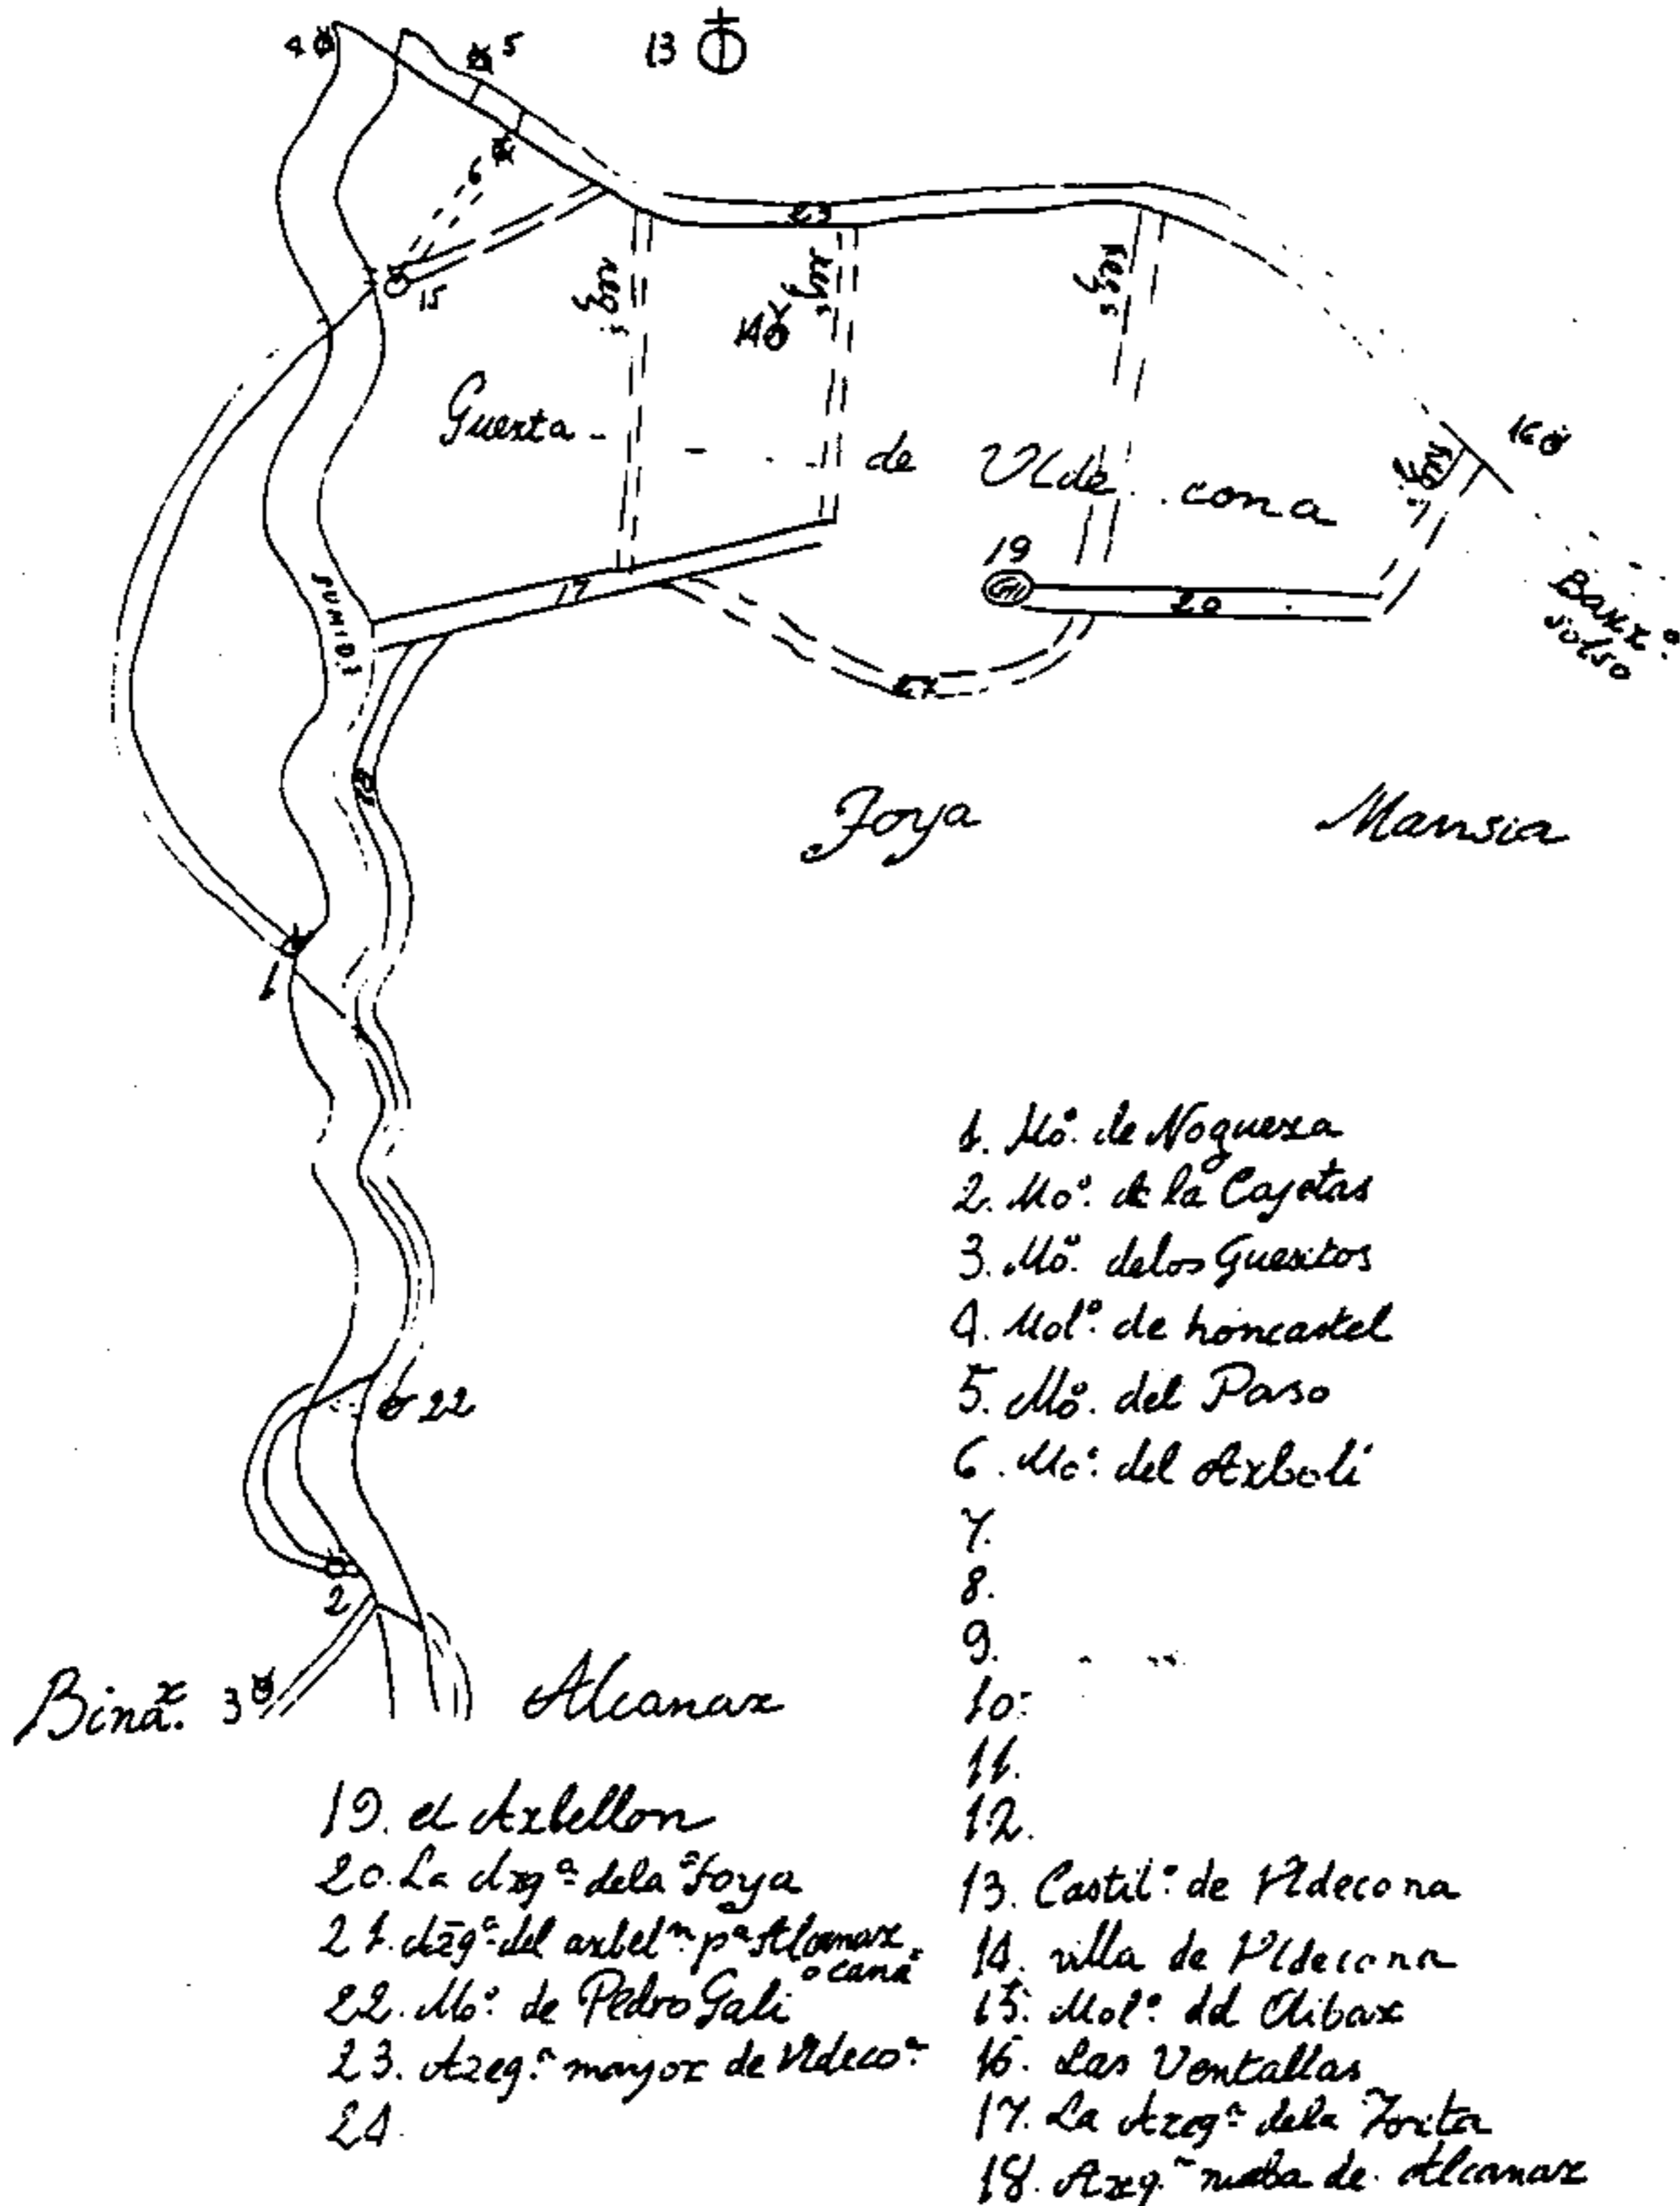 4
5
13
6
15
23
14
16
Guerta de Vlde cona
19
20
17
Barr.º
solso
18
Foya
Marrsia
1
1. Mº. de Noguera
2. Mº. de la Cajetas
3. Mº. delos Gueritos
4. Molº. de honcastel
5. Mº. del Paso
6. Mº. del Arboli
7.
8.
9.
10.
11.
12.
13. Castil.º de Vldecona
14. villa de Vldecona
15. Molº. del Aibar
16. Las Ventallas
17. La Azegª dela Foreta
18. Azegª nueba de Alcanar
22
2
Binar. 3
Alcanar
19. el Arbellon
20. La Azgª dela Foya
21. Azegª del arbelⁿ pª Alcanar
o cana
22. Mº. de Pedro Gali
23. Azeg.ª mayor de Vldecoª
24.